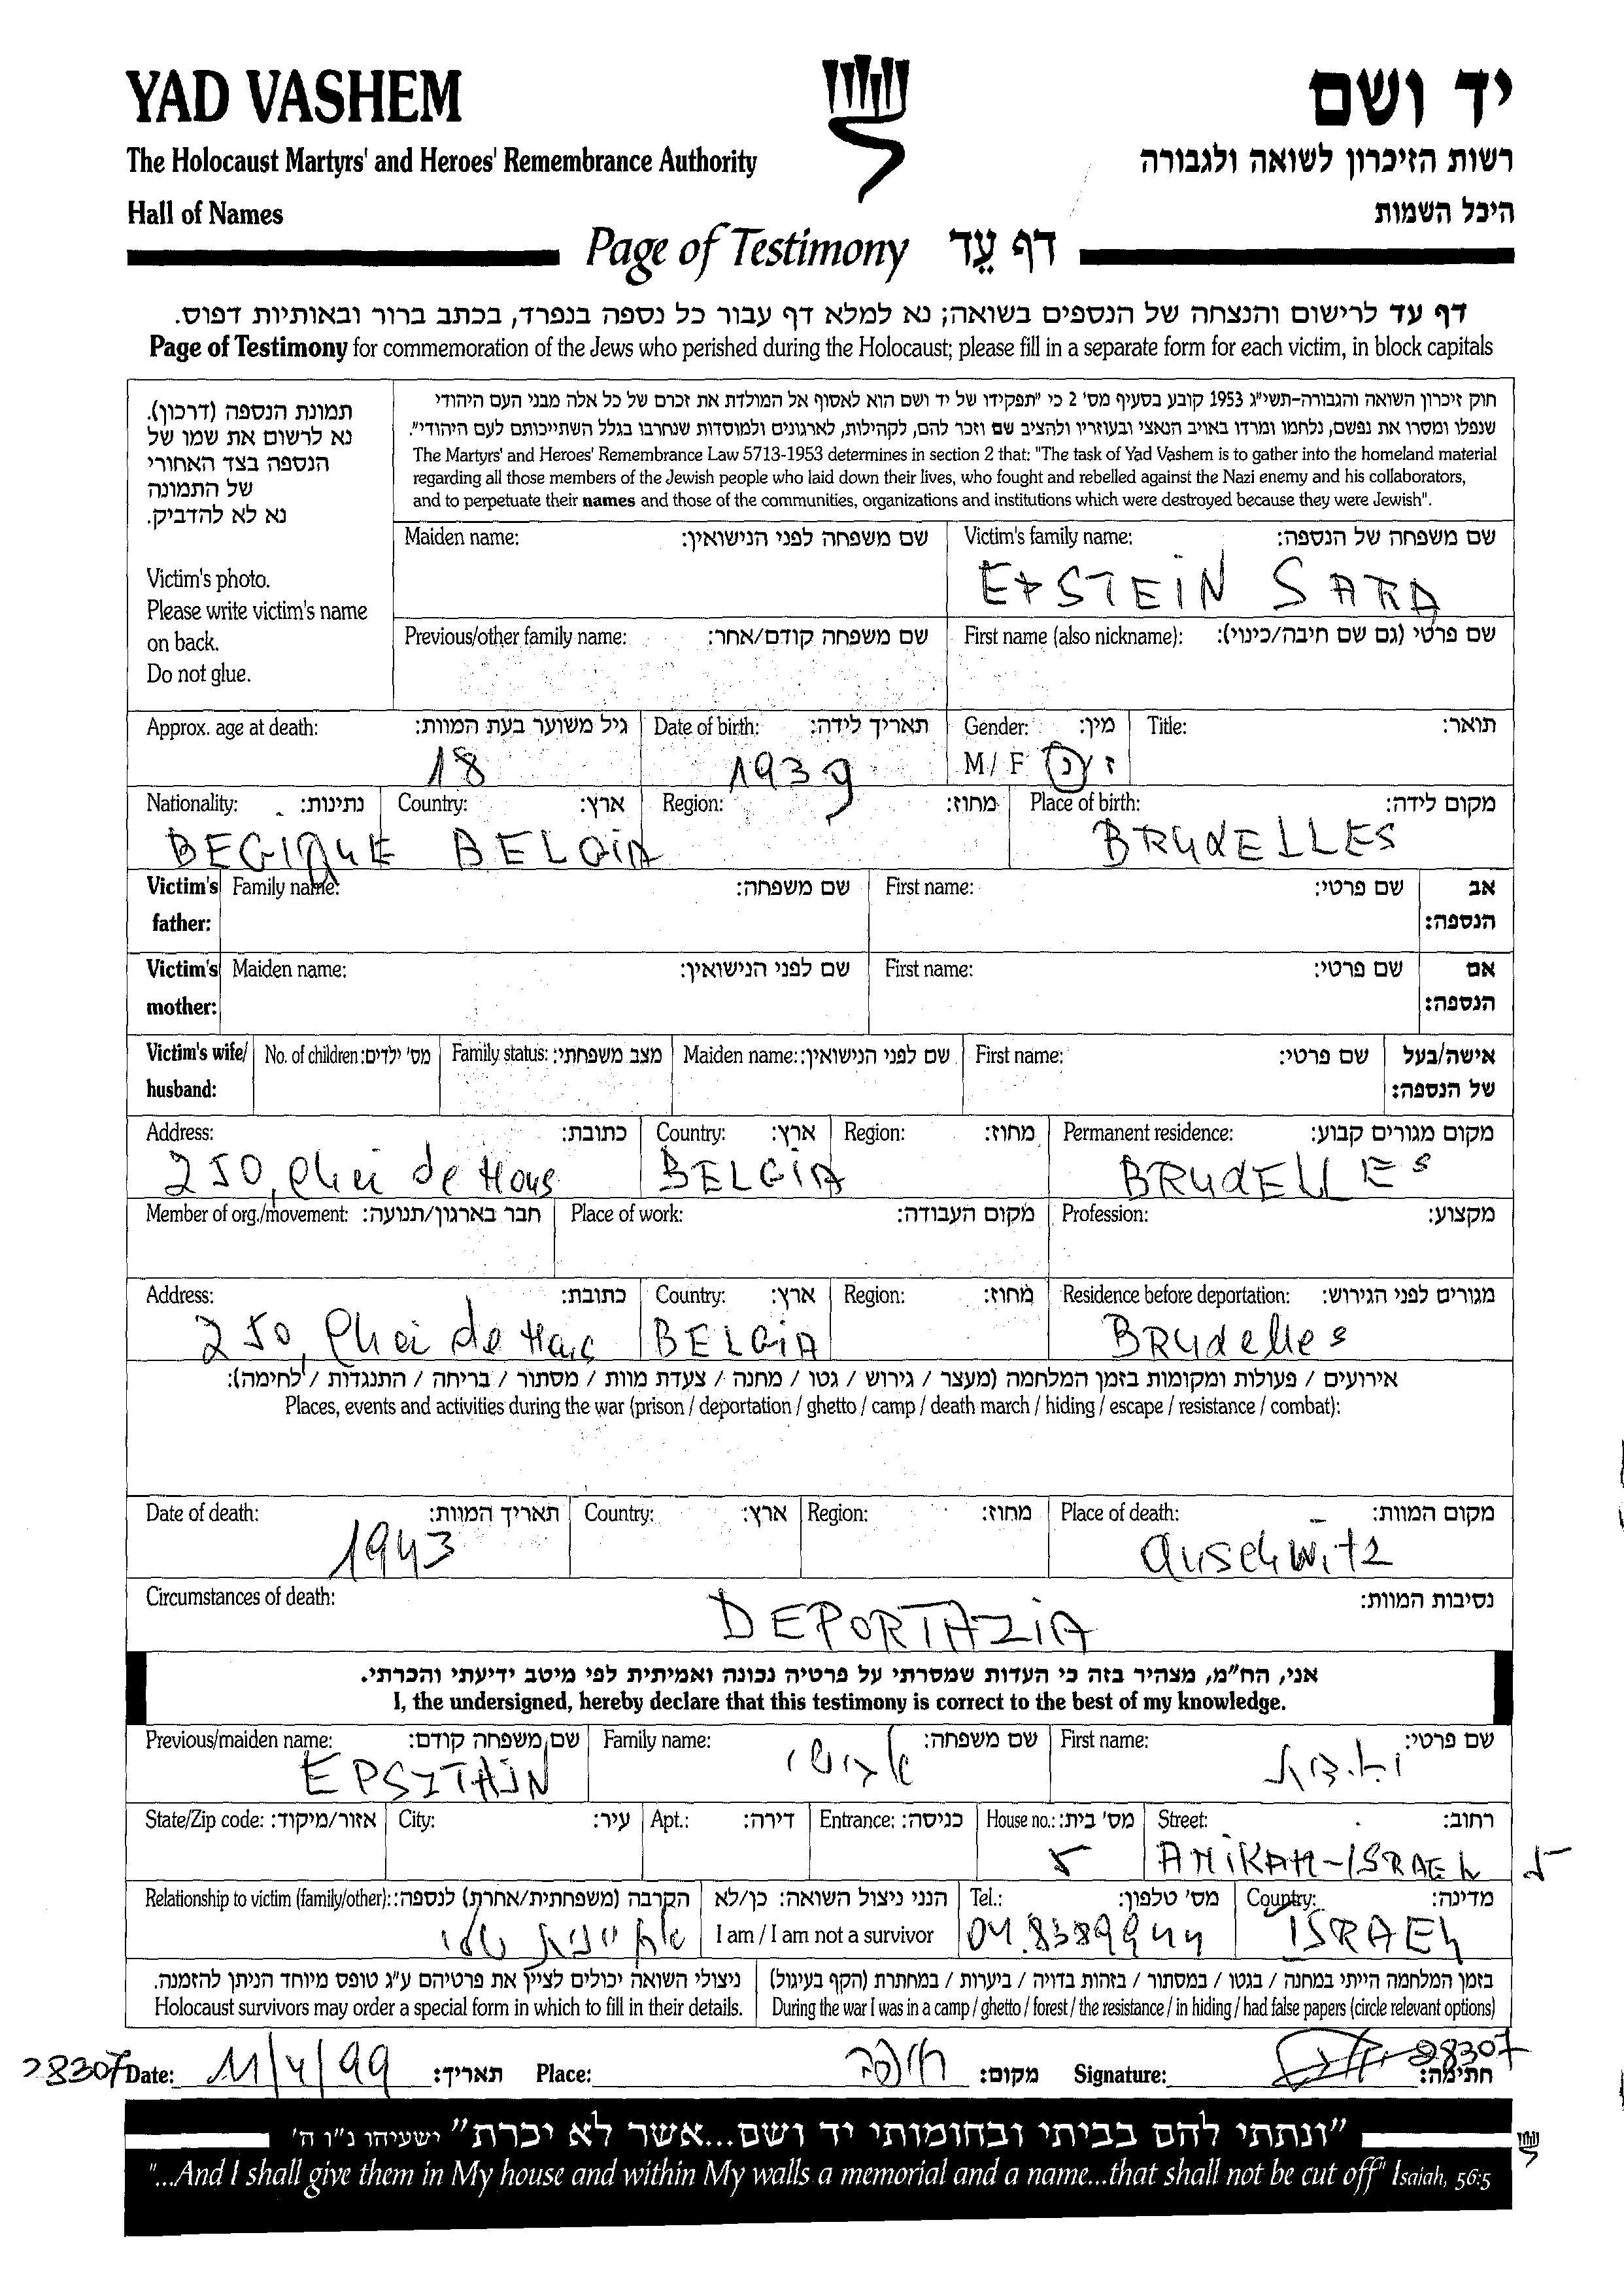 YAD VASHEM
יד ושם
The Holocaust Martyrs' and Heroes' Remembrance Authority
רשות הזיכרון לשואה ולגבורה
Hall of Names
היכל השמות
Page of Testimony דף עֵד
דף עד לרישום והנצחה של הנספים בשואה; נא למלא דף עבור כל נספה בנפרד, בכתב ברור ובאותיות דפוס.
Page of Testimony for commemoration of the Jews who perished during the Holocaust; please fill in a separate form for each victim, in block capitals
תמונת הנספה (דרכון).
נא לרשום את שמו של
הנספה בצד האחורי
של התמונה
נא לא להדביק.
Victim's photo.
Please write victim's name
on back.
Do not glue.
חוק זיכרון השואה והגבורה-תשי"ג 1953 קובע בסעיף מס' 2 כי "תפקידו של יד ושם הוא לאסוף אל המולדת את זכרם של כל אלה מבני העם היהודי
שנפלו ומסרו את נפשם, נלחמו ומרדו באויב הנאצי ובעוזריו ולהציב שם וזכר להם, לקהילות, לארגונים ולמוסדות שנחרבו בגלל השתייכותם לעם היהודי".
The Martyrs' and Heroes' Remembrance Law 5713-1953 determines in section 2 that: "The task of Yad Vashem is to gather into the homeland material
regarding all those members of the Jewish people who laid down their lives, who fought and rebelled against the Nazi enemy and his collaborators,
and to perpetuate their names and those of the communities, organizations and institutions which were destroyed because they were Jewish".
Maiden name: שם משפחה לפני הנישואין:
Victim's family name: שם משפחה של הנספה:
EPSTEIN SARA
Previous/other family name: שם משפחה קודם/אחר:
First name (also nickname): שם פרטי (גם שם חיבה/כינוי):
Approx. age at death: גיל משוער בעת המוות:
18
Date of birth: תאריך לידה:
1939
Gender: מין:
M/ F ז/נ
Title: תואר:
Nationality: נתינות:
BEGIQUE
Country: ארץ:
BELGIA
Region: מחוז:
Place of birth: מקום לידה:
BRUXELLES
Victim's father: Family name: שם משפחה: First name: שם פרטי: אב הנספה:
Victim's mother: Maiden name: שם לפני הנישואין: First name: שם פרטי: אם הנספה:
Victim's wife/ husband: No. of children: מס' ילדים: Family status: מצב משפחתי: Maiden name: שם לפני הנישואין: First name: שם פרטי: אישה/בעל של הנספה:
Address: כתובת:
250, de
Country: ארץ:
BELGIA
Region: מחוז:
Permanent residence: מקום מגורים קבוע:
BRUXELLES
Member of org./movement: חבר בארגון/תנועה: Place of work: מקום העבודה: Profession: מקצוע:
Address: כתובת:
250, de
Country: ארץ:
BELGIA
Region: מחוז:
Residence before deportation: מגורים לפני הגירוש:
Bruxelles
אירועים / פעולות ומקומות בזמן המלחמה (מעצר / גירוש / גטו / מחנה / צעדת מוות / מסתור / בריחה / התנגדות / לחימה):
Places, events and activities during the war (prison / deportation / ghetto / camp / death march / hiding / escape / resistance / combat):
Date of death: תאריך המוות:
1943
Country: ארץ:
Region: מחוז:
Place of death: מקום המוות:
Auschwitz
Circumstances of death: נסיבות המוות:
DEPORTAZIA
אני, הח"מ, מצהיר בזה כי העדות שמסרתי על פרטיה נכונה ואמיתית לפי מיטב ידיעתי והכרתי.
I, the undersigned, hereby declare that this testimony is correct to the best of my knowledge.
Previous/maiden name: שם משפחה קודם:
EPSZTAJN
Family name: שם משפחה:
First name: שם פרטי:
State/Zip code: אזור/מיקוד: City: עיר: Apt.: דירה: Entrance: כניסה: House no.: מס' בית:
5
Street: רחוב:
AMIKAM-ISRAEL 5
Relationship to victim (family/other): הקרבה (משפחתית/אחרת) לנספה:
הנני ניצול השואה: כן/לא
I am / I am not a survivor
Tel.: מס' טלפון:
04.8389944
Country: מדינה:
ISRAEL
ניצולי השואה יכולים לציין את פרטיהם ע"ג טופס מיוחד הניתן להזמנה.
Holocaust survivors may order a special form in which to fill in their details.
בזמן המלחמה הייתי במחנה / בגטו / במסתור / בזהות בדויה / ביערות / במחתרת (הקף בעיגול)
During the war I was in a camp / ghetto / forest / the resistance / in hiding / had false papers (circle relevant options)
28307 Date: 11/4/99 תאריך: Place: חיפה מקום: Signature: 28307 חתימה:
"ונתתי להם בביתי ובחומותי יד ושם...אשר לא יכרת" ישעיהו נ"ו ה'
"...And I shall give them in My house and within My walls a memorial and a name...that shall not be cut off" Isaiah, 56:5